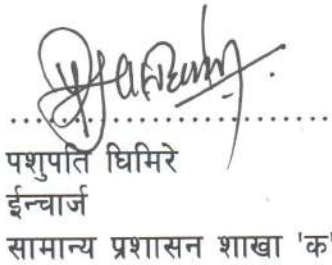 पशुपति घिमिरे
ईन्चार्ज
सामान्य प्रशासन शाखा 'क'